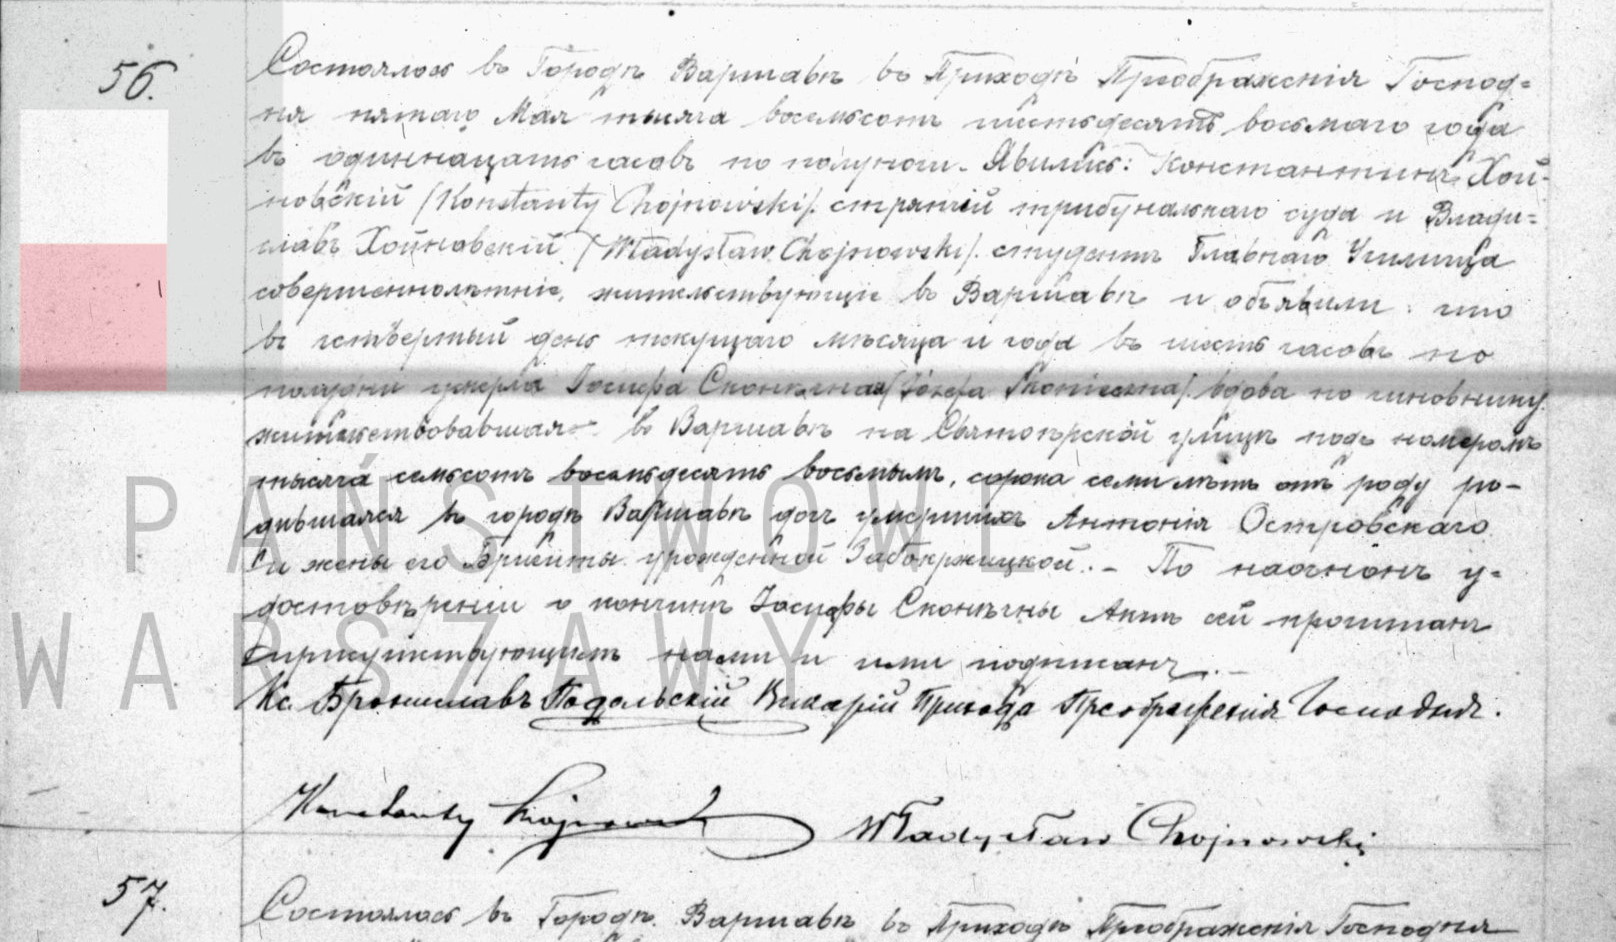 56.
Состоялось въ Городѣ Варшавѣ въ Приходѣ Преображенія Господ=
ня пятаго Мая тысяча восемьсотъ шестьдесятъ восьмаго года
въ одиннацать часовъ по полуночи. Явились: Константинъ Хой-
новскій /Konstanty Chojnowski/. стряпчій трибунальнаго суда и Влади=
славъ Хойновскій /Władysław Chojnowski/. студентъ Главнаго Училища
совершеннолѣтніе, жительствующіе въ Варшавѣ и объявили: что
въ четвертый день текущаго мѣсяца и года въ шесть часовъ по
полудни умерла Іосифа Сконѣчная /Józefa Skonieczna/. вдова по чиновнику
жительствовавшая въ Варшавѣ на Святоерской улицѣ подъ номеромъ
тысяча семьсотъ восемьдесятъ восьмымъ, сорока семи лѣтъ отъ роду ро-
дившаяся въ городѣ Варшавѣ дочь умершихъ Антонія Островскаго
и жены его Бригиты урожденной Забокржицкой. - По наочномъ у-
достовѣреніи о кончинѣ Іосифы Сконѣчны Актъ сей прочитанъ
присутствующимъ нами и ими подписанъ. -
Кс. Брониславъ Подольскій Викарій Прихода Преображенія Господня.
Konstanty Chojnowski Władysław Chojnowski
57.
Состоялось въ Городѣ Варшавѣ въ Приходѣ Преображенія Господня
PAŃSTWOWE
WARSZAWY